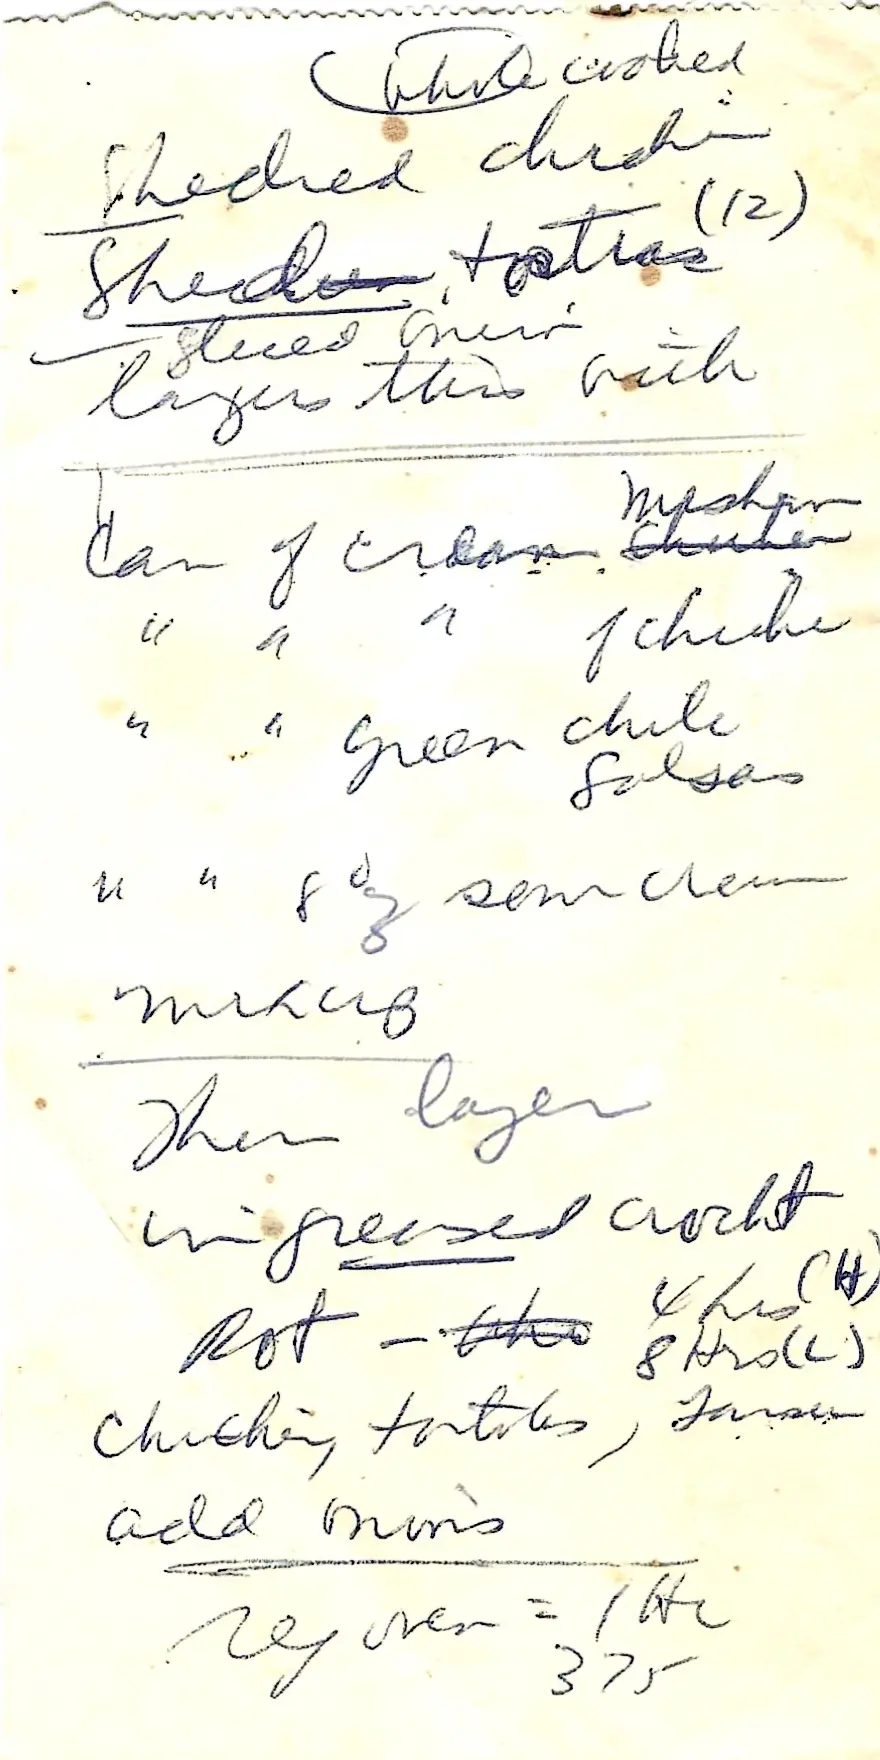 Whole cooked
Shedred chicken
Shedren tortias (12)
sliced onion
layers this with
Can of cream Mushrm
" " " of chicken
" " green chile
Salsas
" " 8 oz sour cream
mix up
Then layer
in greased crockt
Pot - 4 hrs (H)
8 Hrs (L)
Chicken, tortilas,
add onions
reg oven = 1 Hr
375